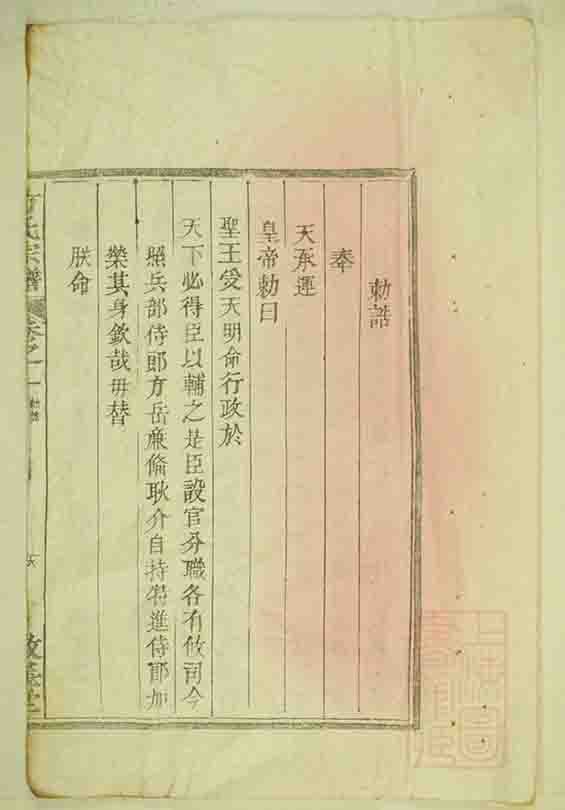 勅誥
奉
天承運
皇帝勅曰
聖王受天明命行政於
天下必得臣以輔之是臣設官分職各有攸司今
照兵部侍郎方岳廉偹耿介自持特進侍郎加
榮其身欽哉毋替
朕命
方氏宗譜 卷之一
勅誥
六
敦義堂
上海圖書館藏